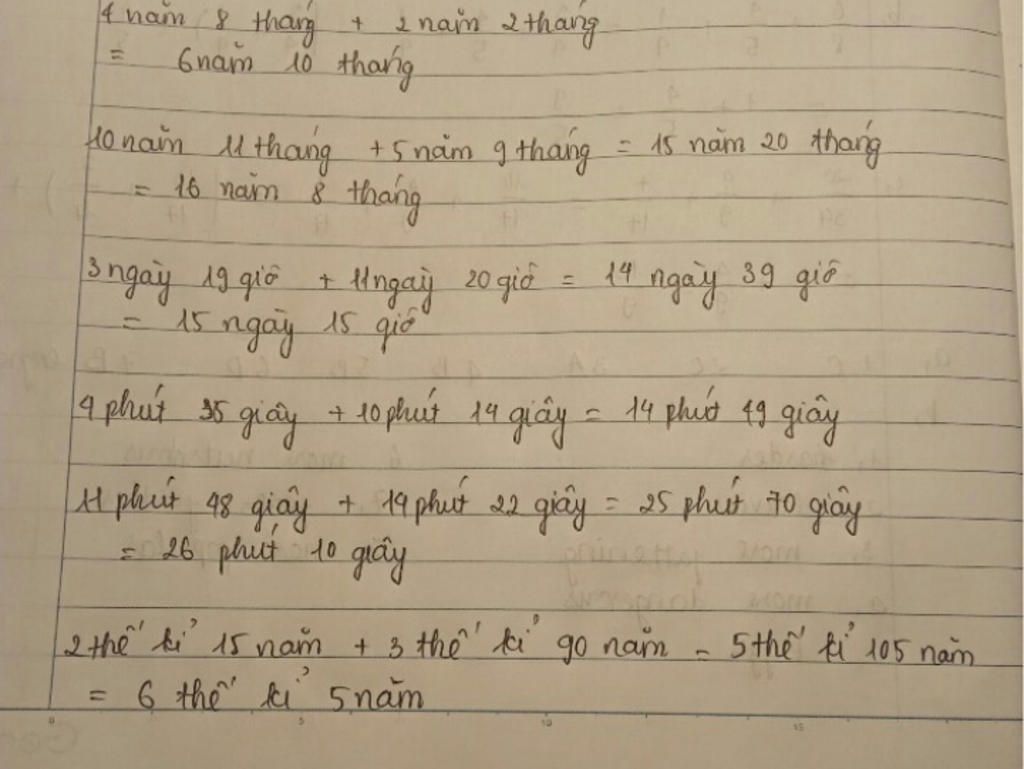 4 năm 8 tháng + 2 năm 2 tháng
= 6 năm 10 tháng
10 năm 11 tháng + 5 năm 9 tháng = 15 năm 20 tháng
= 16 năm 8 tháng
3 ngày 19 giờ + 11 ngày 20 giờ = 14 ngày 39 giờ
= 15 ngày 15 giờ
4 phút 35 giây + 10 phút 14 giây = 14 phút 49 giây
11 phút 48 giây + 14 phút 22 giây = 25 phút 70 giây
= 26 phút 10 giây
2 thế kỉ 15 năm + 3 thế kỉ 90 năm = 5 thế kỉ 105 năm
= 6 thế kỉ 5 năm
0 5 10 15